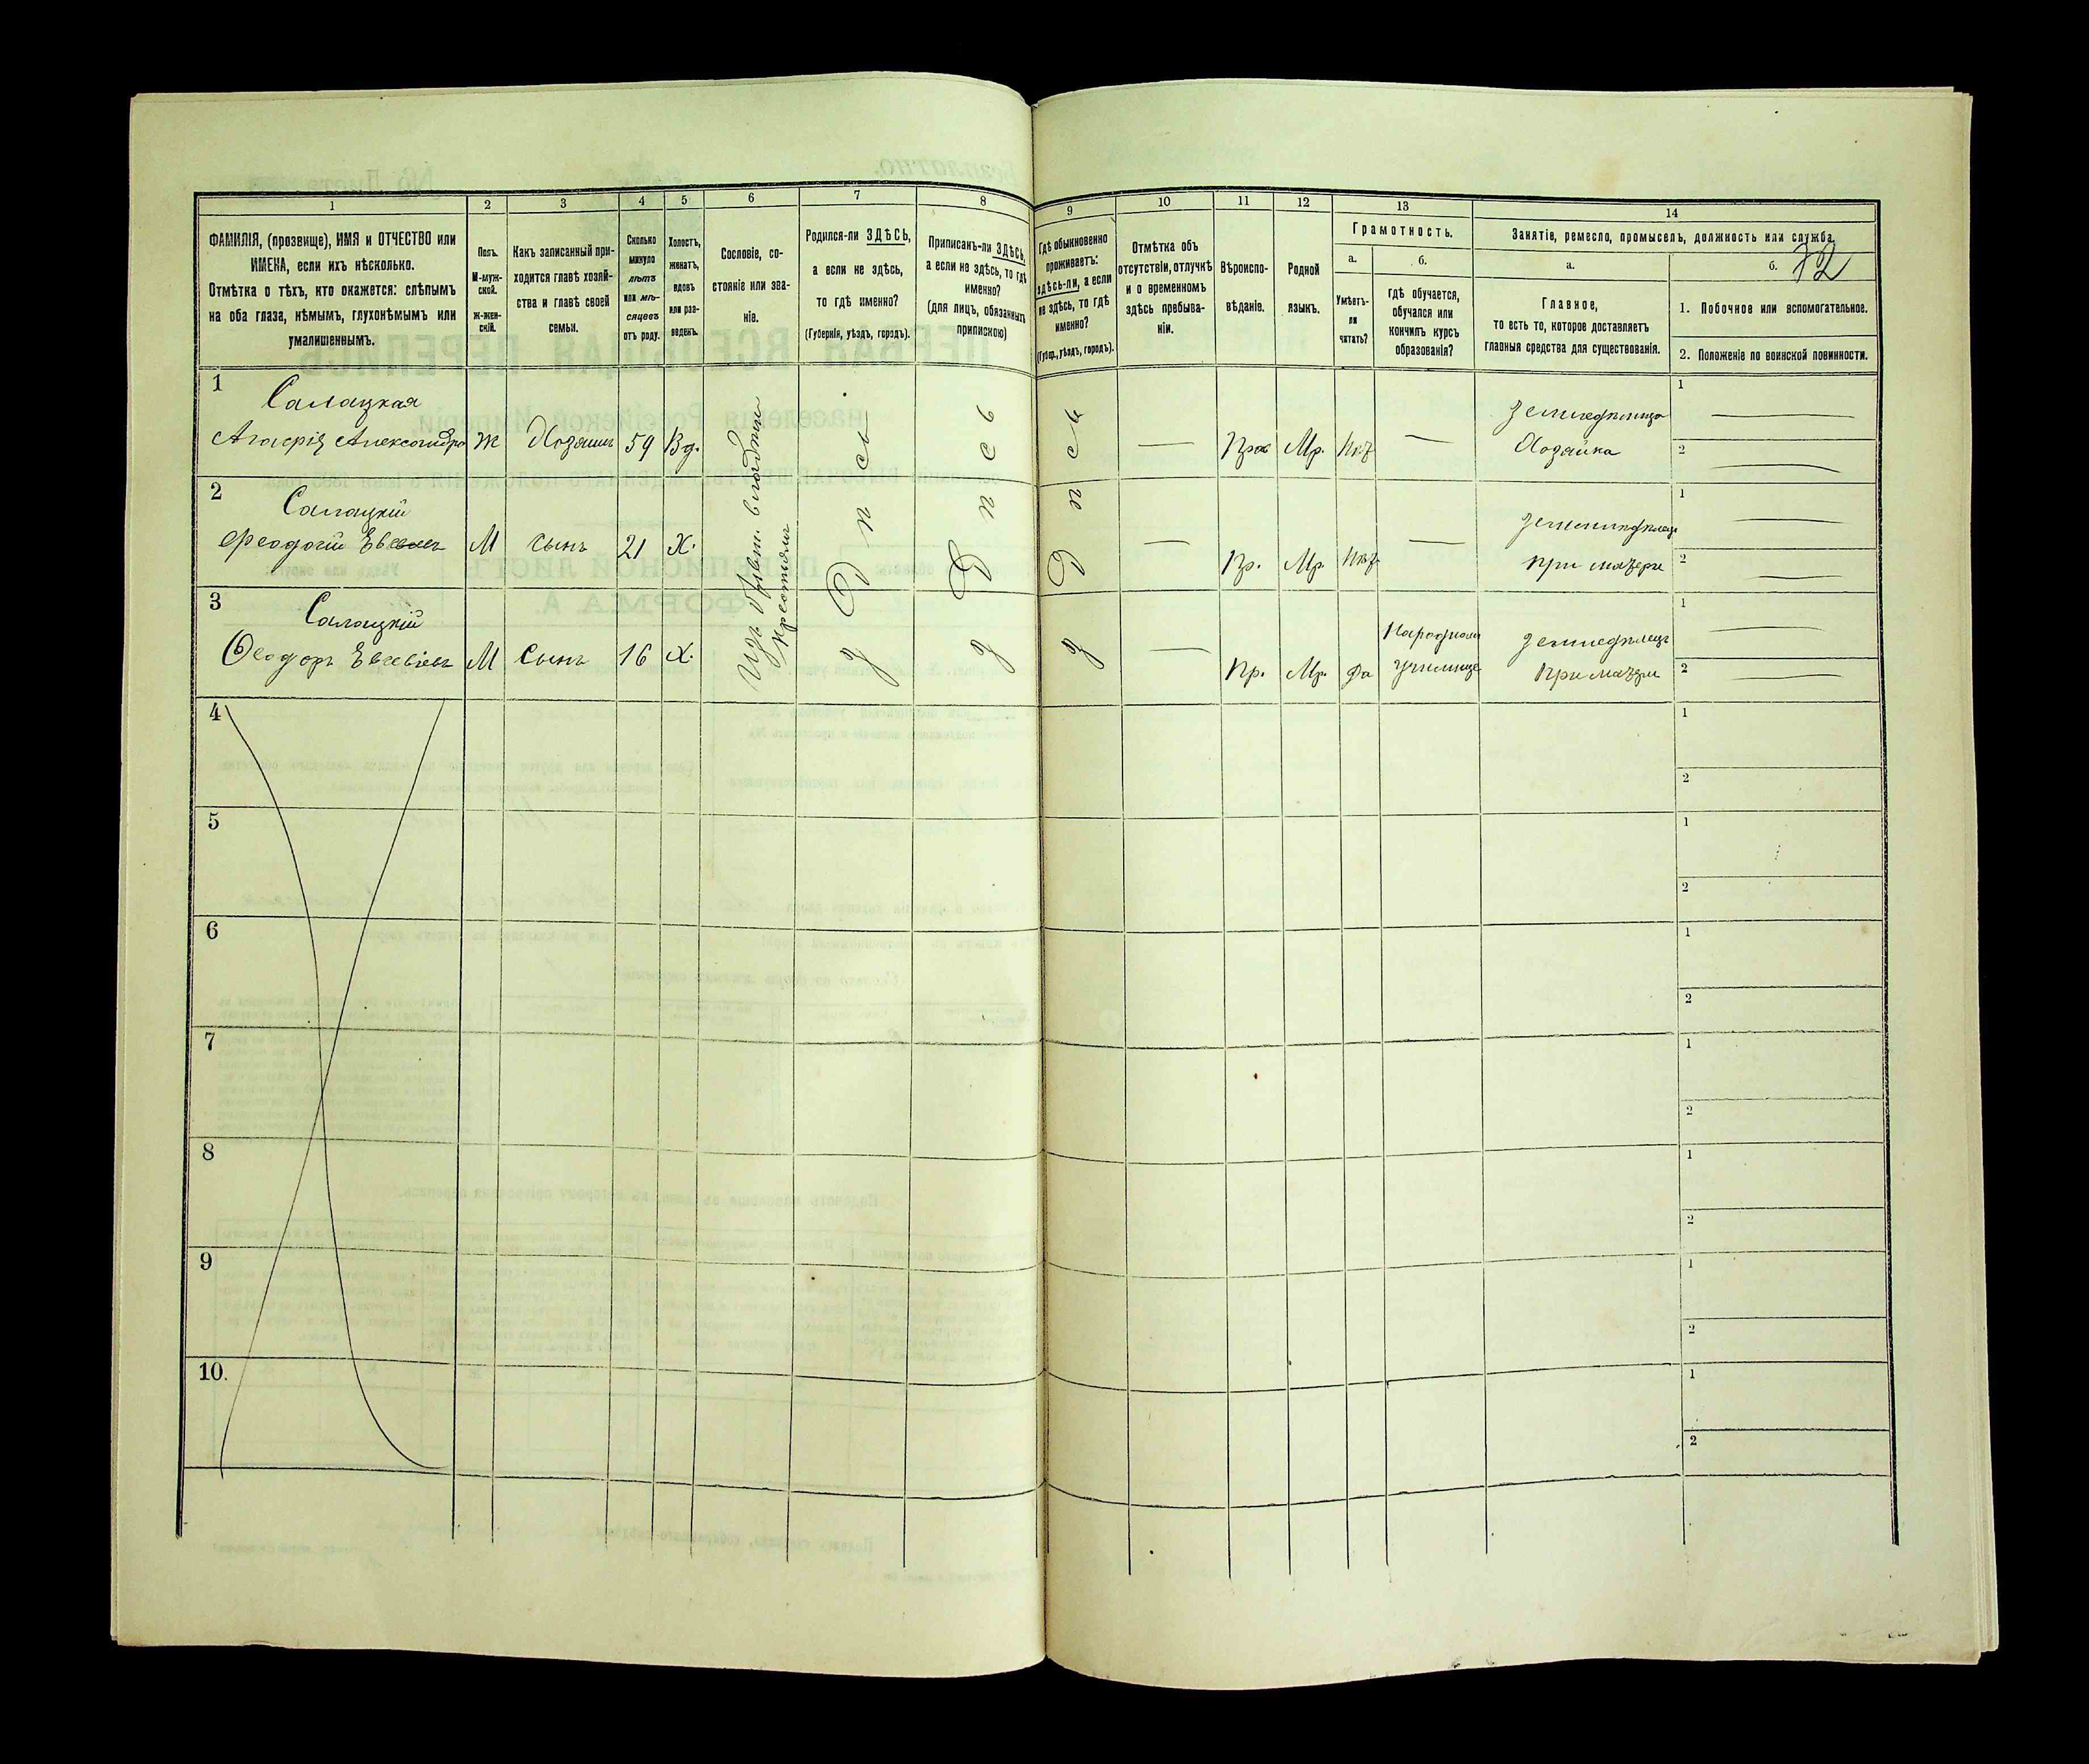 72
1
2
3
4
5
6
7
8
9
10
11
12
13
14
ФАМИЛІЯ, (прозвище), ИМЯ и ОТЧЕСТВО или
ИМЕНА, если ихъ нѣсколько.
Отмѣтка о тѣхъ, кто окажется: слѣпымъ
на оба глаза, нѣмымъ, глухонѣмымъ или
умалишеннымъ.
Полъ.
М-муж-
ской.
Ж-жен-
скій.
Какъ записанный при-
ходится главѣ хозяй-
ства и главѣ своей
семьи.
Сколько
минуло
лѣтъ
или мѣ-
сяцевъ
отъ роду.
Холостъ,
женатъ,
вдовъ
или раз-
веденъ.
Сословіе, со-
стояніе или зва-
ніе.
Родился-ли ЗДѢСЬ,
а если не здѣсь,
то гдѣ именно?
(Губернія, уѣздъ, городъ).
Приписанъ-ли ЗДѢСЬ,
а если не здѣсь, то гдѣ
именно?
(для лицъ, обязанныхъ
припискою)
Гдѣ обыкновенно
проживаетъ:
здѣсь-ли, а если
не здѣсь, то гдѣ
именно?
(Губер., уѣздъ, городъ).
Отмѣтка объ
отсутствіи, отлучкѣ
и о временномъ
здѣсь пребыва-
ніи.
Вѣроиспо-
вѣданіе.
Родной
языкъ.
Грамотность.
а.
Умѣетъ-
ли
читать?
б.
гдѣ обучается,
обучался или
кончилъ курсъ
образованія?
Занятіе, ремесло, промыселъ, должность или служба.
а.
Главное,
то есть то, которое доставляетъ
главныя средства для существованія.
б.
1. Побочное или вспомогательное.
2. Положеніе по воинской повинности.
1
Салацкая
Ж
59
Вд.
Мр.
Хозяйка
1
2
2
Салацкій
М
сынъ
21
Х.
Пр.
Мр.
при матери
1
2
3
Салацкій
Ѳеодоръ Евсевіевъ
М
Сынъ
16
Х.
Пр.
Мр.
Да
училище
земледѣлецъ
При матери
1
2
здѣсь
здѣсь
здѣсь
4
1
2
5
1
2
6
1
2
7
1
2
8
1
2
9
1
2
10.
1
2